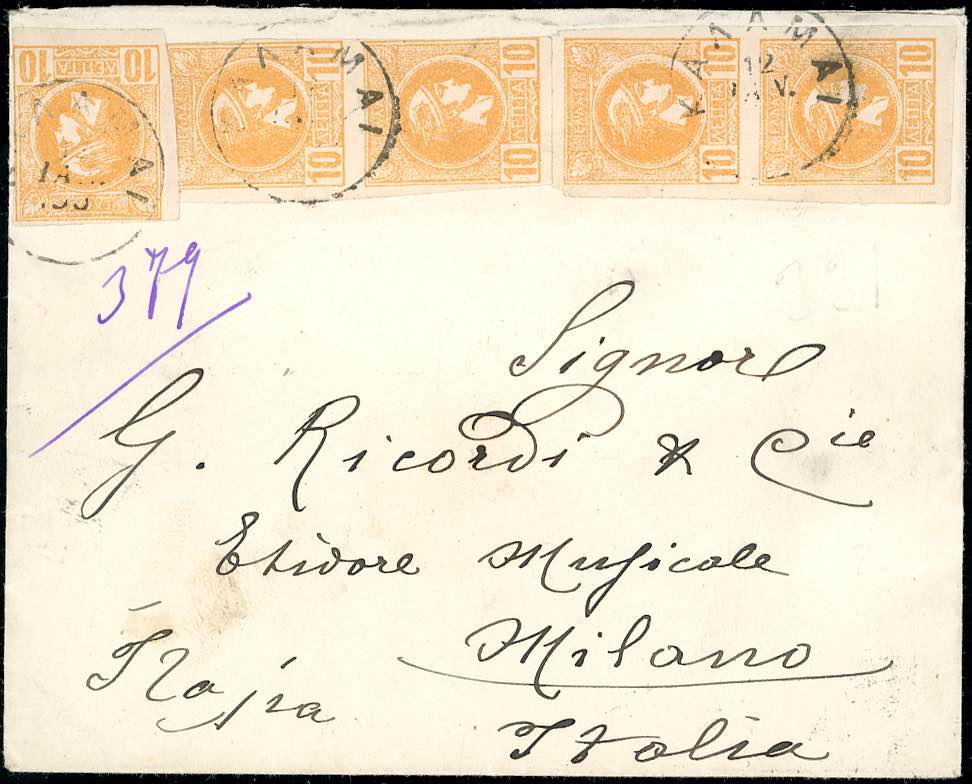 10 ΛΕΠΤΑ 10
10 ΛΕΠΤΑ 10
10 ΛΕΠΤΑ 10
10 ΛΕΠΤΑ 10
10 ΛΕΠΤΑ 10
ΚΑΛΑΜΑΙ
12
ΙΑΝ.
379
Signore
G. Ricordi & Cie
Etidore Musicale
Milano
Italia